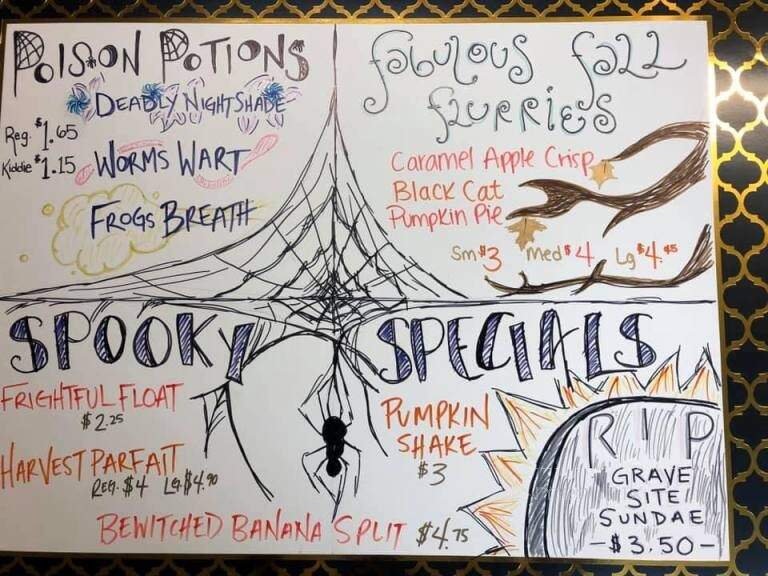 Poison Potions
Deadly Nightshade
Reg. $1.65
Kiddie $1.15
Worms Wart
Frogs Breath
fabulous fall
flurries
Caramel Apple Crisp
Black Cat
Pumpkin Pie
Sm $3 Med $4 Lg $4.45
SPOOKY SPECIALS
FRIGHTFUL FLOAT
$2.25
HARVEST PARFAIT
REG. $4 LG. $4.90
PUMPKIN
SHAKE
$3
BEWITCHED BANANA SPLIT $4.75
R I P
GRAVE
SITE
SUNDAE
- $3.50 -